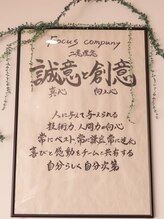 Focus company
誠意と創意
真心
向上心
人に与えて与えられる
技術力、人間力の向心
常にベスト 常に謙虚 常に進化
喜びと感動をチームと共有する
自分らしく自分次第